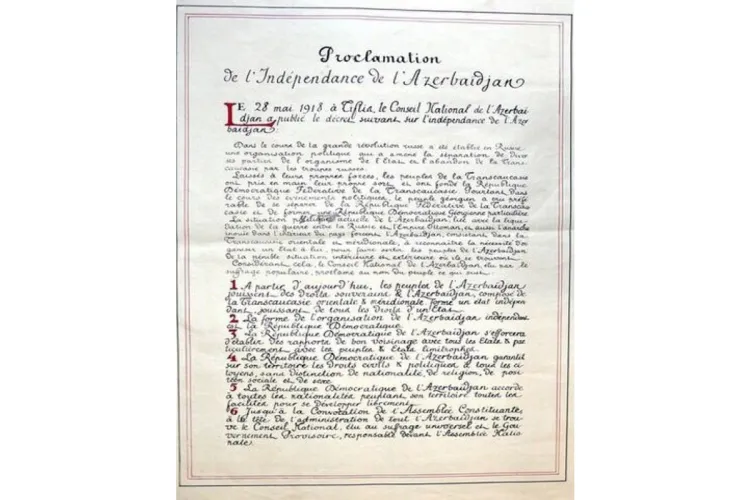 Proclamation
de l'Indépendance de l'Azerbaidjan
LE 28 mai 1918 à Tiflis, le Conseil National de l'Azerbai-
djan a publié le décret suivant sur l'indépendance de l'Azer
baidjan:
Dans le cours de la grande révolution russe a été établie en Russie
une organisation politique qui a amené la séparation de Diver
ses parties de l'organisme de l'Etat et l'abandon de la Trans-
caucasie par les troupes russes.
Laissés à leurs propres forces, les peuples de la Transcaucasie
ont pris en main leur propre sort et ont fondé la République
Démocratique Fédérative de la Transcaucasie. Pourtant, Dans
le cours des évènements politiques, le peuple géorgien a cru préfé
rable de se séparer de la République Fédérative de la Transcau
casie et de former une République Démocratique Géorgienne particulière.
La situation politique actuelle de l'Azerbaidjan, lié avec la liqui-
dation de la guerre entre la Russie et l'Empire Ottoman, et aussi l'anarchie
inouie dans l'intérieur du pays, forcent l'Azerbaidjan, consistant dans la
Transcaucasie orientale et méridionale, à reconnaître la nécessité d'or
ganiser un Etat à lui, pour faire sortir les peuples de l'Azerbaidjan
de la pénible situation intérieure et extérieure où ils se trouvent.
Considérant cela, le Conseil National de l'Azerbaidjan, élu par le
suffrage populaire, proclame au nom du peuple ce qui suit:
1. A partir d'aujourd'hui, les peuples de l'Azerbaidjan
jouissent des Droits souverains & l'Azerbaidjan, composé de
la Transcaucasie orientale & méridionale, forme un état indépen
dant, jouissant de tous les droits d'un Etat.
2 La forme de l'organisation de l'Azerbaidjan indépendant
est la République Démocratique.
3 La République Démocratique de l'Azerbaidjan s'efforcera
d'établir des rapports de bon voisinage avec tous les Etats & par
ticulièrement avec les peuples & Etats limitrophes.
4 La République Démocratique de l'Azerbaidjan garantit
sur son territoire les Droits civils & politiques à tous les ci
toyens, sans distinction de nationalité, de religion, de posi-
tion sociale et de sexe.
5 La République Démocratique de l'Azerbaidjan accorde
à toutes les nationalités peuplant son territoire toutes les
facilités pour se développer librement.
6 Jusqu'à la Convocation de l'Assemblée Constituante,
à la tête de l'administration de tout l'Azerbaidjan se trou
ve le Conseil National, élu au suffrage universel et le Gou
vernement Provisoire, responsable devant l'Assemblée Natio
nale.